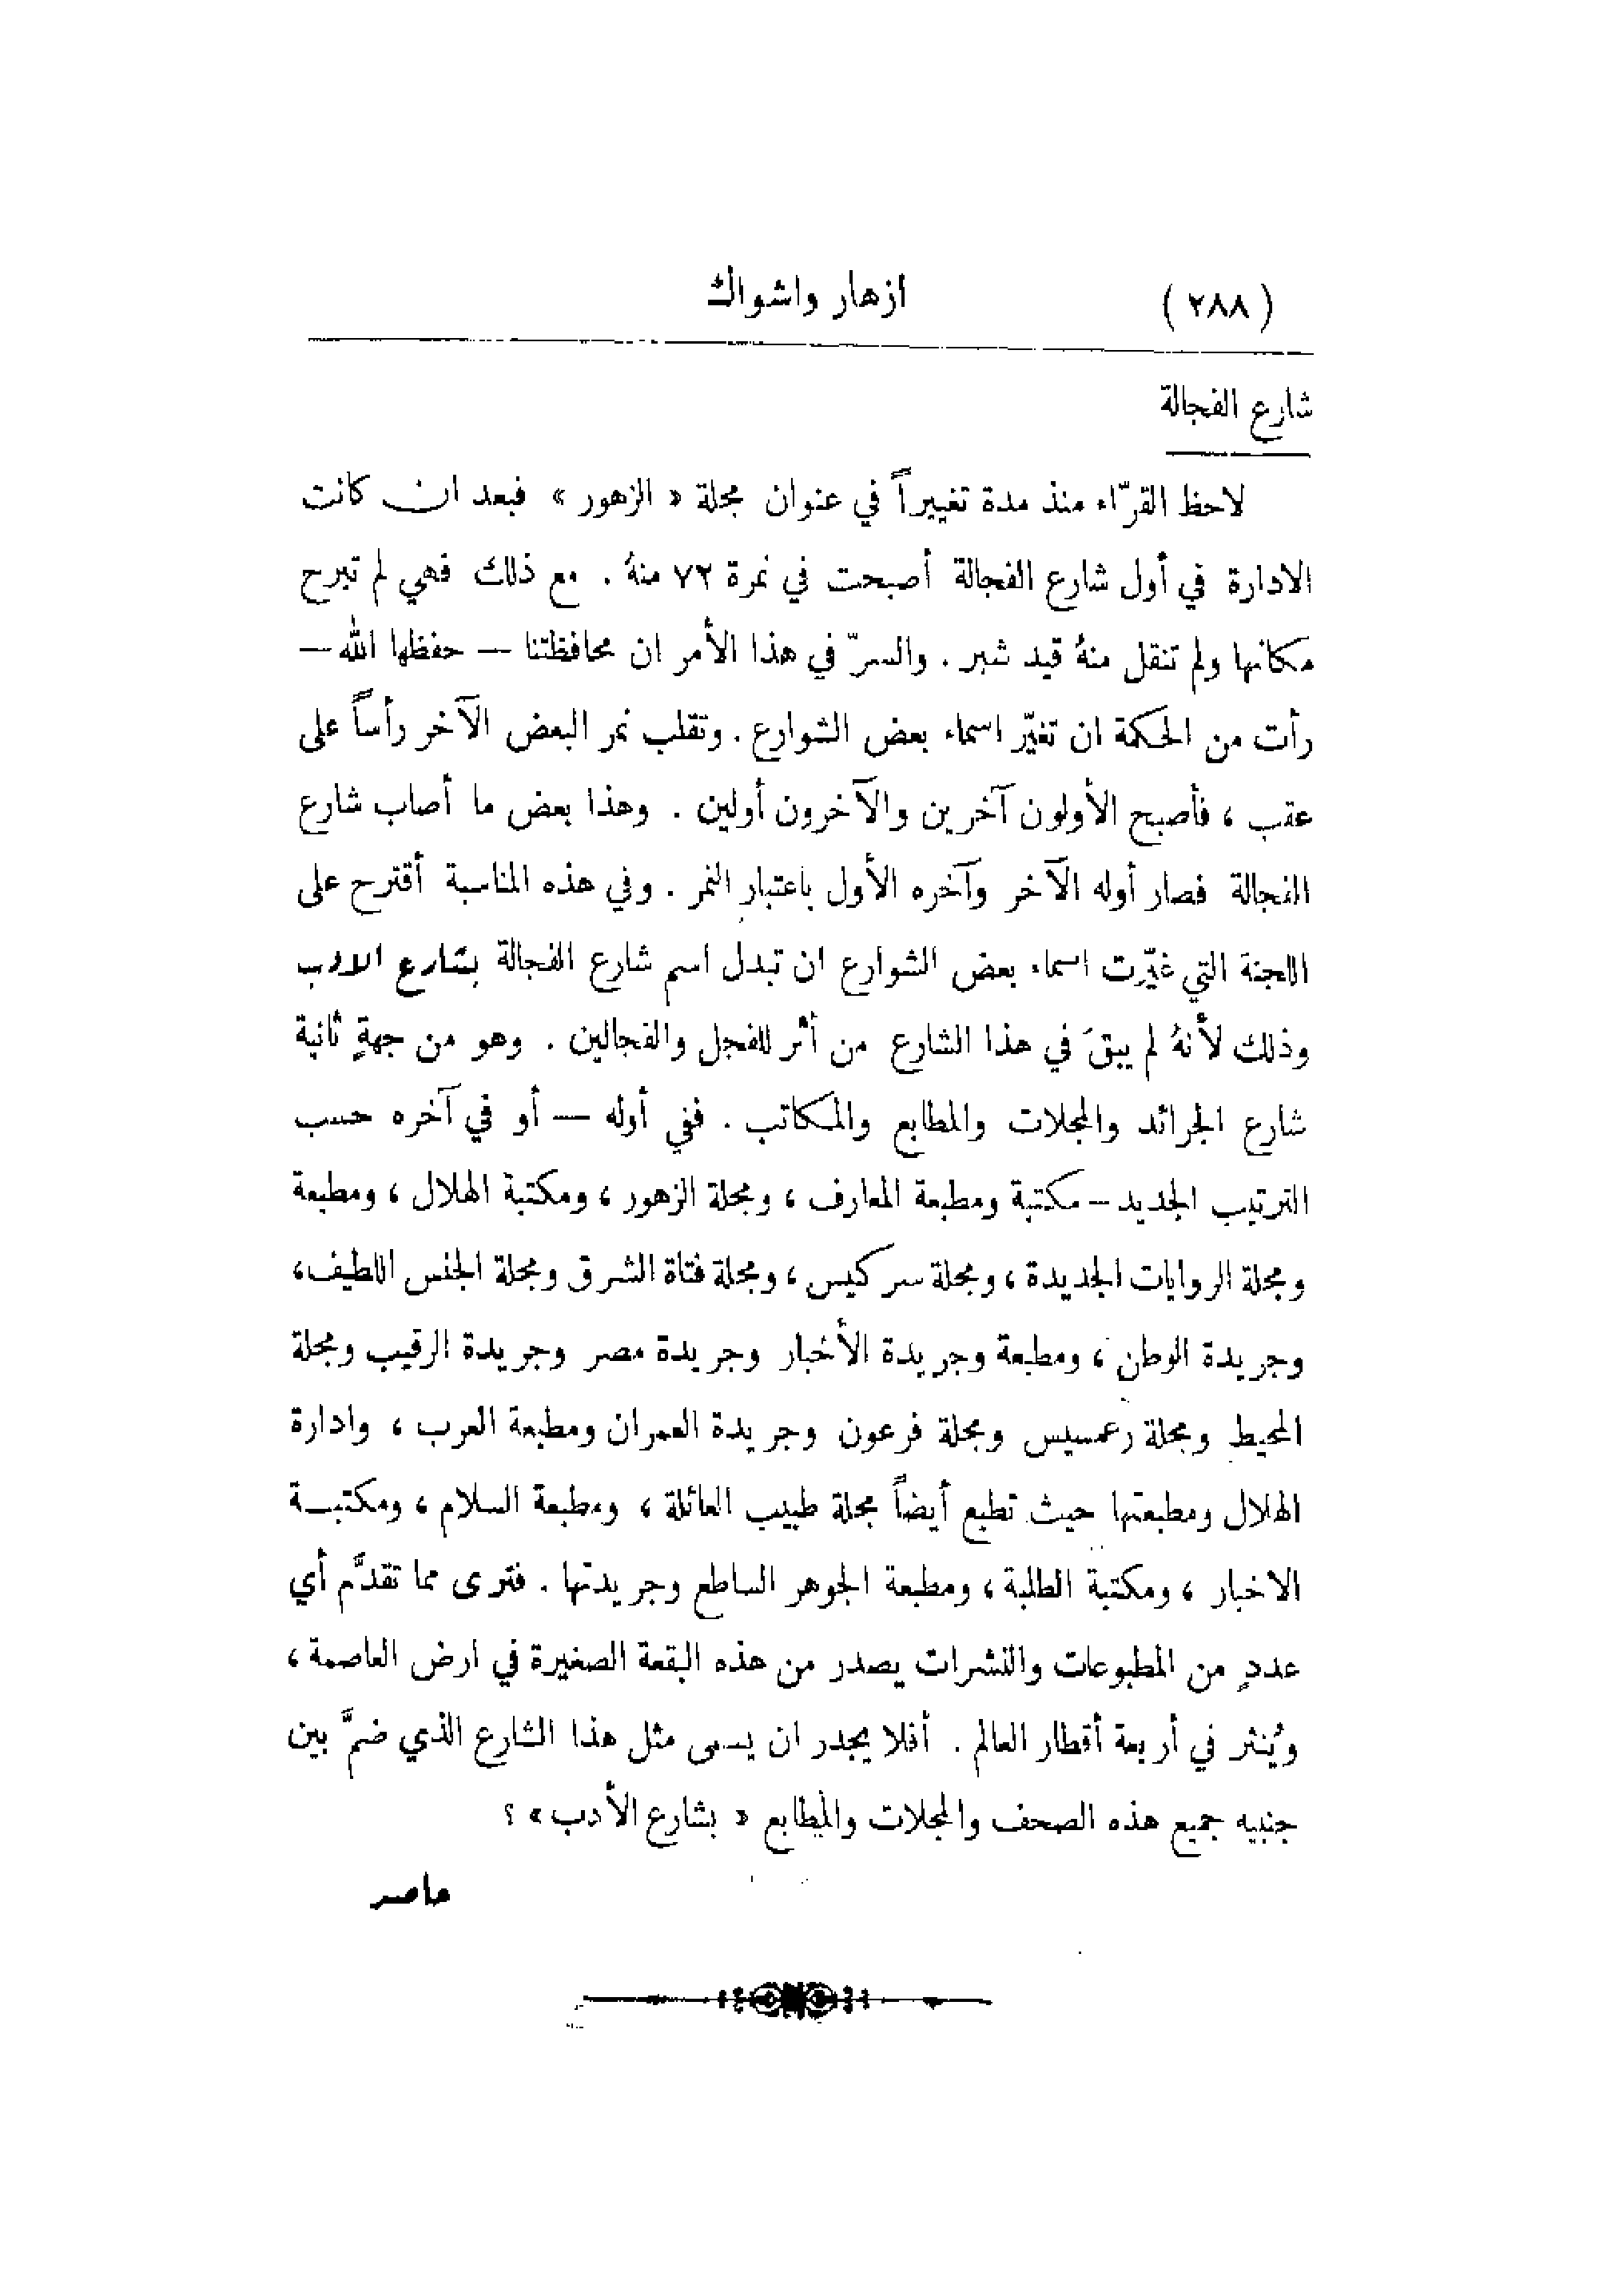 ( ٢٨٨ ) ازهار واشواك
شارع الفجالة
لاحظ القرّاء منذ مدة تغييراً في عنوان مجلة « الزهور » فبعد ان كانت
الادارة في أول شارع الفجالة أصبحت في نمرة ٧٢ منهُ . مع ذلك فهي لم تبرح
مكانها ولم تنقل منهُ قيد شبر . والسرّ في هذا الأمر ان محافظتنا — حفظها الله —
رأت من الحكمة ان تغيّر اسماء بعض الشوارع . وتقلب نمر البعض الآخر رأساً على
عقب ، فأصبح الأولون آخرين والآخرون أولين . وهذا بعض ما أصاب شارع
الفجالة فصار أوله الآخر وآخره الأول باعتبار النمر . وفي هذه المناسبة أقترح على
اللجنة التي غيّرت اسماء بعض الشوارع ان تبدل اسم شارع الفجالة بشارع الادب
وذلك لأنهُ لم يبقَ في هذا الشارع من أثر للفجل والفجالين . وهو من جهةٍ ثانية
شارع الجرائد والمجلات والمطابع والمكاتب . ففي أوله — أو في آخره حسب
الترتيب الجديد — مكتبة ومطبعة المعارف ، ومجلة الزهور ، ومكتبة الهلال ، ومطبعة
ومجلة الروايات الجديدة ، ومجلة سركيس ، ومجلة فتاة الشرق ومجلة الجنس اللطيف ،
وجريدة الوطن ، ومطبعة وجريدة الأخبار وجريدة مصر وجريدة الرقيب ومجلة
المحيط ومجلة رعمسيس ومجلة فرعون وجريدة العمران ومطبعة العرب ، وادارة
الهلال ومطبعتها حيث تطبع أيضاً مجلة طبيب العائلة ، ومطبعة السلام ، ومكتبـة
الاخبار ، ومكتبة الطلبة ، ومطبعة الجوهر الساطع وجريدتها . فترى مما تقدَّم أي
عددٍ من المطبوعات والنشرات يصدر من هذه البقعة الصغيرة في ارض العاصمة ،
ويُنثر في أربعة أقطار العالم . أفلا يجدر ان يسمى مثل هذا الشارع الذي ضمَّ بين
جنبيه جميع هذه الصحف والمجلات والمطابع « بشارع الأدب » ؟
حاصر